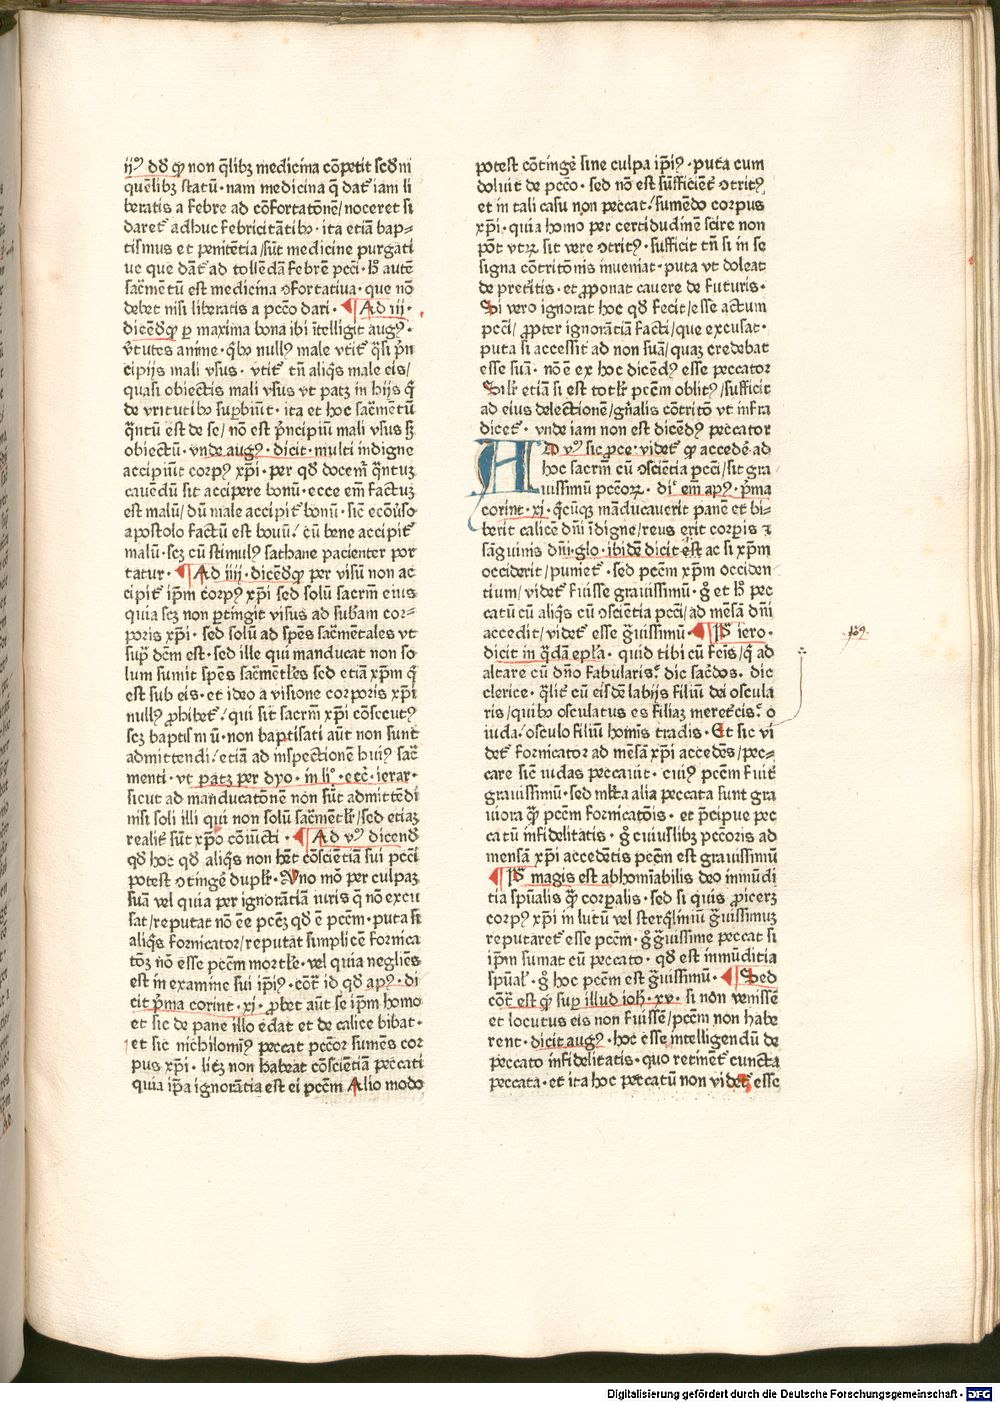 ijꝰ dōd ꝙ non q̄libꝫ medicina cōpetit sedm̄
quēlibꝫ statū · nam medicina q̄ dat᷑ iam li
beratis a febre ad cōfortatōnē / noceret si
daret᷑ adhuc febricitātibꝰ · ita etiā bap⸗
tismus et penitētia / sūt medicine purgati
ue que dāt᷑ ad tollēdā febrē pcc̄i · hͦ autē
sac̄mētū est medicina ↄfortatiua · que nō
debet nisi liberatis a pcc̄o dari · Ad iij ·
dicēdꝙ ꝑ maxima bona ibi ītelligit augꝰ ·
v̄tutes anime · q̄bꝰ nullꝰ male vtit᷑ q̄si p̄n
cipijs mali vsus · vtit᷑ tn̄ aliq̄s male eis /
quasi obiectis mali vsus vt patꝫ in hijs q̄
de vrtutibꝰ suꝑbiūt · ita et hoc sac̄mētū
q̄ntū est de se / nō est p̄ncipiū mali vsus sꝫ
obiectū · vnde augꝰ · dicit · multi indigne
accipiūt corpꝰ xp̄i · per qd̄ docem᷑ q̄ntuꝫ
cauēdū sit accipere bonū · ecce em̄ factuꝫ
est malū / dū male accipit᷑ bonū · sic̄ ecōuso
apostolo factū est bonū / cū bene accipit᷑
malū · scꝫ cū stimulꝰ sathane pacienter por
tatur · Ad iiij · dicēdꝙ per visū non ac
cipit᷑ ip̄m corpꝰ xp̄i sed solū sacrm̄ eius
quia scꝫ non ꝑtingit visus ad sub̄am cor⸗
poris xp̄i · sed solū ad sp̄es sac̄mētales vt
sup̄ dc̄m est · sed ille qui manducat non so
lum sumit sp̄es sac̄mētl̄es sed etiā xp̄m q̄
est sub eis · et ideo a visione corporis xp̄i
nullꝰ ꝓhibet᷑ / qui sit sacrm̄ xp̄i cōsecutꝰ
scꝫ baptism ū · non baptisati aūt non sunt
admittendi / etiā ad inspectionē huiꝰ sac̄
menti · vt patꝫ per dyo · in liͦ · ecc̄ · ierar ·
sicut ad manducatōnē non sūt admittēdi
nisi soli illi qui non solū sac̄mētl̄r / sed etiaꝫ
realit᷑ sūt xp̄o cōiūcti · Ad vꝰ dicend
qd̄ hoc qd̄ aliq̄s non hēt cōsciētiā sui pcc̄i
potest ↄtingē dupl̄r · Vno mō per culpaꝫ
suā vel quia per ignorātiā iuris q̄ nō excu
sat / reputat nō ēe pcēꝫ qd̄ ē pcc̄m · puta si
aliq̄s fornicator / reputat simplicē fornica
tōꝫ nō esse pcc̄m mortl̄e · vel quia neglīes
est in examine sui ip̄iꝰ · cōt̄ id qd̄ apꝰ · di
cit p̄ma corint · xj · ꝓbet aūt se ip̄m homo
et sic de pane illo edat et de calice bibat ·
et sic nichilomīꝰ peccat pcc̄or sumēs cor
pus xp̄i · licꝫ non habeat cōsciētiā peccati
quia ip̄a ignorātia est ei pcc̄m Alio modo
potest cōtingē sine culpa ip̄iꝰ · puta cum
doluit de pcc̄o · sed nō est sufficiēt᷑ ↄtritꝰ
et in tali casu non peccat / sumēdo corpus
xp̄i · quia homo per certidudinē scire non
pōt vtꝝ sit vere ↄtritꝰ · sufficit tn̄ si in se
signa cōtritōnis inueniat · puta vt doleat
de pretītis · et ꝓponat cauere de futuris ·
Si vero ignorat hoc qd̄ fecit / esse actum
pcc̄i / ꝓpter ignorātiā facti / que excusat ·
puta si accessit ad non suā / quaꝫ credebat
esse suā · nō ē ex hoc dicēdꝰ esse peccator
Silr̄ etiā si est totl̄r pcc̄m oblitꝰ / sufficit
ad eius delectionē / gn̄alis cōtritō vt infra
dicet᷑ · vnde iam non est dicēdꝰ peccator
AD vꝰ sic ꝓce · videt᷑ ꝙ accedē ad
hoc sacrm̄ cū ↄsciētia pcc̄i / sit gra
uissimū pcc̄oꝝ · di᷑ em̄ apꝰ · p̄ma
corint · xj · q̄cūqꝫ māducauerit panē et bi⸗
berit calicē dn̄i īdigne / reus erit corꝑis ⁊
sāguinis dn̄i · glo · ibidē dicit ēst ac si xp̄m
occiderit / puniet᷑ · sed pcc̄m xp̄m occiden
tium / videt᷑ fuisse grauissimū · g̊ et hͦ pec
catū cū aliq̄s cū ↄsciētia pcc̄i / ad mēsā dn̄i
accedit / videt᷑ esse g̊uissimū · Pͥ iero ·
dicit in q̄dā epl̄a · quid tibi cū fēis / q̄ ad
altare cū dn̄o fabularis / dic sac̄dos · dic
clerice · q̄lit᷑ cū eisdē labijs filiū dei oscula
ris / quibꝰ osculatus es filiaꝫ meret᷑cis / o
iuda / osculo filiū homīs tradis · Et sic vi
det᷑ fornicator ad mēsā xp̄i accedēs / pec⸗
care sic̄ iudas peccauit · cuiꝰ pcc̄m fuit᷑
grauissimū · sed ml̄ta alia peccata sunt gra
uiora q̄ꝫ pcc̄m fornicatōis · et p̄cipue pec
catū infidelitatis · g̊ cuiuslibꝫ pcc̄oris ad
mensā xp̄i accedētis pcc̄m est grauissimū
Pͥ magis est abhomīabilis deo inmūdi
tia spūalis q̄ꝫ corꝑalis · sed si quis ꝓicerꝫ
corpꝰ xp̄i in lutū vel sterq̄liniū g̊uissimuꝫ
reputaret᷑ esse pcc̄m · g̊ g̊uissime peccat si
ip̄m sumat cū peccato · qd̄ est inmūditia
spūal᷑ · g̊ hoc pcc̄m est g̊uissimū · Sed
cōt̄ est ꝙ suꝑ illud ioh̄ · xv · si nōn venissē
et locutus eis non fuissē / pcc̄m non habe
rent · dicit augꝰ · hoc esse intelligendū de
peccato infidelitatis · quo retinēt᷑ cuncta
peccata · et ita hoc peccatū non videt᷑ esse
Digitalisierung gefördert durch die Deutsche Forschungsgemeinschaft · DFG